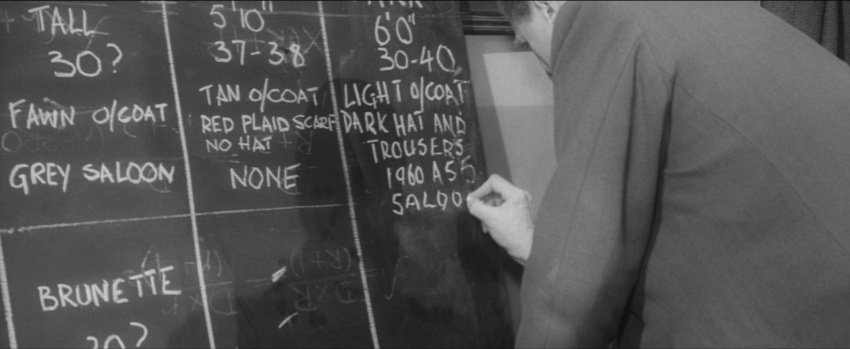 TALL
30?
FAWN O/COAT
GREY SALOON
5'10"
37-38
TAN O/COAT
RED PLAID SCARF
NO HAT
NONE
6'0"
30-40
LIGHT O/COAT
DARK HAT AND
TROUSERS
1960 A55
SALOO
BRUNETTE
30?